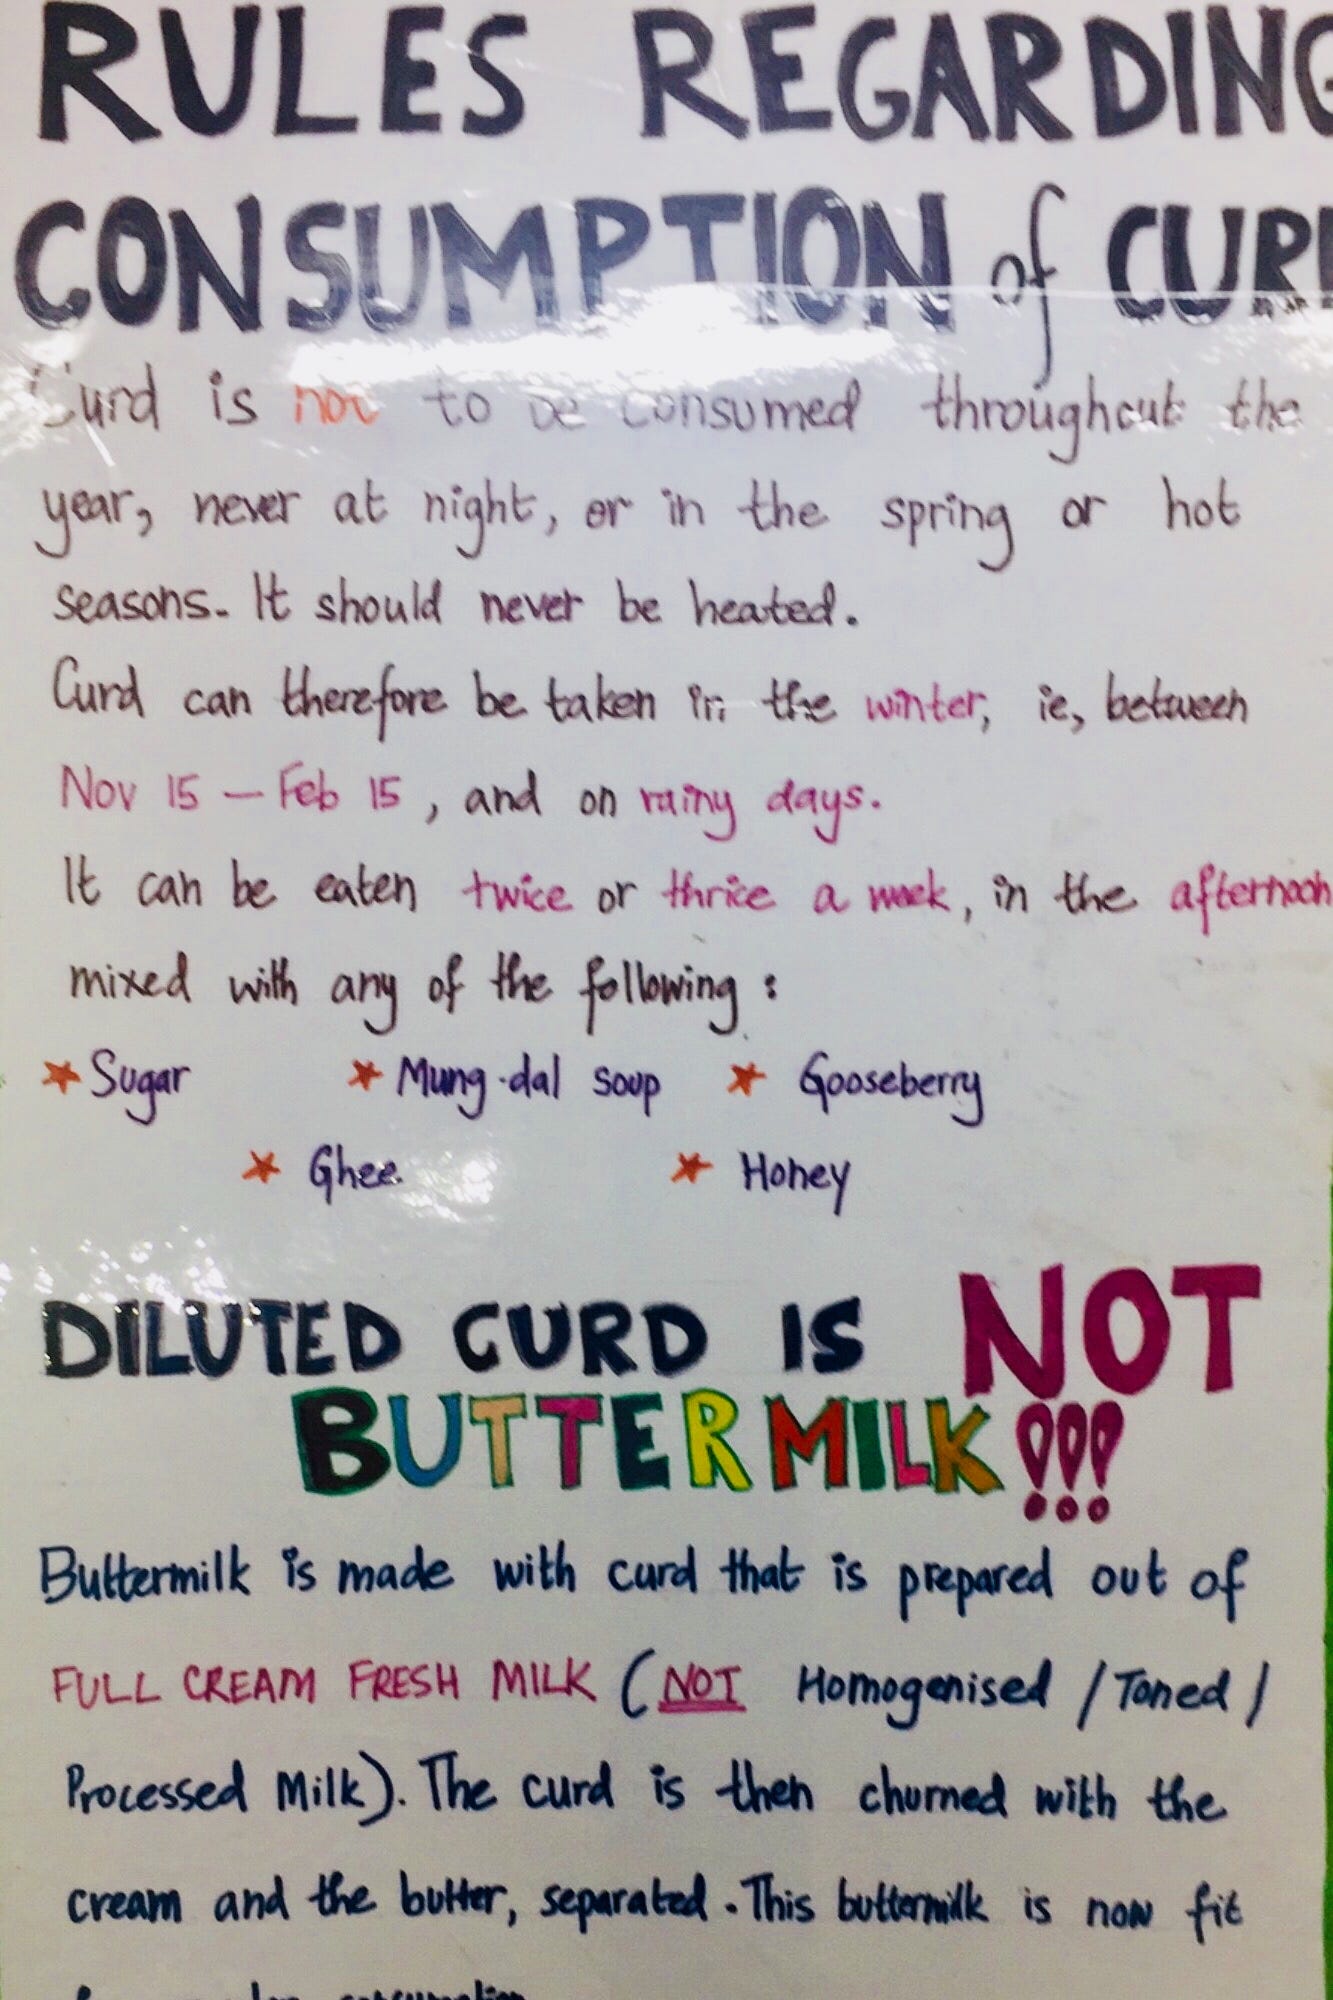 RULES REGARDING
CONSUMPTION of CURD
Curd is not to be consumed throughout the
year, never at night, or in the spring or hot
seasons. It should never be heated.
Curd can therefore be taken in the winter, ie, between
Nov 15 — Feb 15, and on rainy days.
It can be eaten twice or thrice a week, in the afternoon
mixed with any of the following :
★ Sugar ★ Mung-dal soup ★ Gooseberry
★ Ghee ★ Honey
DILUTED CURD IS NOT
BUTTERMILK!!!
Buttermilk is made with curd that is prepared out of
FULL CREAM FRESH MILK (NOT Homogenised / Toned /
Processed Milk). The curd is then churned with the
cream and the butter, separated. This buttermilk is now fit
consumption